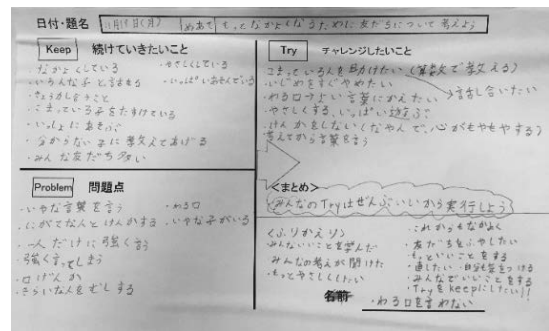 日付・題名 11月18日(月) めあて もっとなかよくなるために友だちについて考えよう
Keep 続けていきたいこと
・なかよくしている
・やさしくしている
・いろんな子と言まる
・いっぱいあそんでいる
・きょうりょくし合うこと
・こまっている子をたすけている
・いっしょにあそぶ
・分からない子に教えてあげる
・みんな友だち多い
Problem 問題点
・いやな言葉を言う
・わる口
・にがてな人とけんかする
・いやな子がいる
・一人だけに強く言う
・強く言ってしまう
・口げんか
・きらいな人をむしする
Try チャレンジしたいこと
こまっている人を助けたい(算数で教える)
・いじめをすぐやめたい
・わる口よりいい言葉にかえたい
→話し合いたい
・やさしくする、いっぱい遊ぶ
・けんかをしない(なやんで、心がもやもやする)
考えてから言葉を言う
<まとめ>
みんなのTryはぜんぶいいから実行しよう
<ふりかえり>
みんないいことを学んだ
・みんなの考えが聞けた
・もっとやさしくしたい
・これからもなかよく
・友だちをふやしたい
・もっといいことをする
・直したい・自分も気をつける
・みんなでいいことをする
・TryをKeepにしたい!!
名前
・わる口を言わない